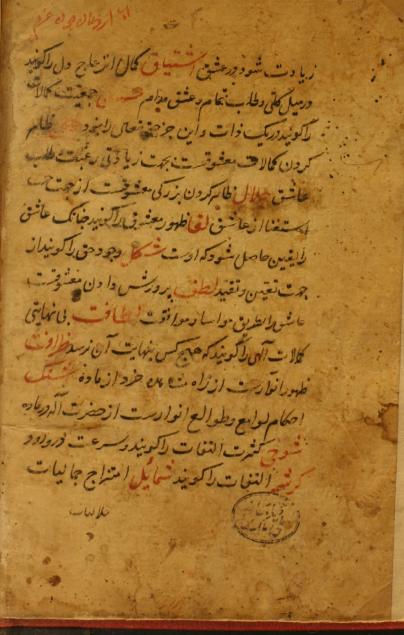 زیادت شود و در عشق اشتیاق کمال انزعاج دل را گویند
در میل کلی و طلب تمام و عشق مدام حسن جمعیت کمالات
را گویند در یک ذات و این جز حق تعالی را نبود ظاهر
کردن کمالات معشوقست بجهت زیادتی رغبت طلب
عاشق جلال ظاهر کردن بزرگی معشوقست از جهت
استغنا از عاشق لقا ظهور معشوق را گویند چنانکه عاشق
را یقین حاصل شود که اوست شکل وجود حق را گویند از
جهت تعین و تقید لطف پرورش دادن معشوقست
عاشق را بطریق مواسا و موافقت لطافت بی نهایتی
کمالات الهی را گویند که هیچ کس بنهایت آن نرسد ظرافت
ظهور انوارست از راه خرد از ماده
احکام لوامع و طوالع انوارست از حضرت اله در ماده
شوخی کثرت التفات را گویند و سرعت
کرشمه التفات را گویند شمایل امتزاج جمالیات